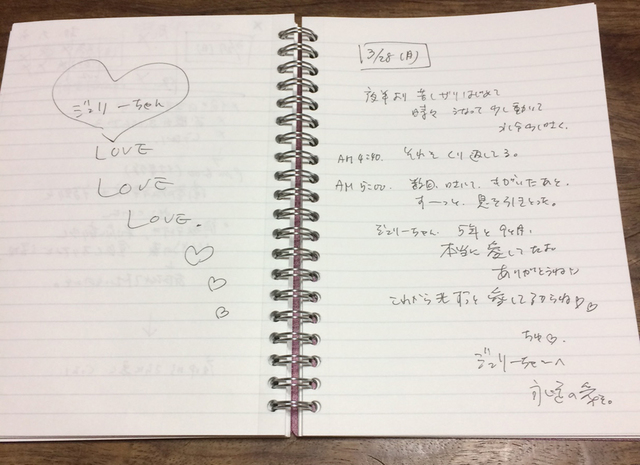 ジュリーちゃん
LOVE
LOVE
LOVE.
3/28(月)
夜半より 苦しがりはじめて
時々 うなって 少し動いて
水分少しはく。
AM 4:40. それをくり返してる。
AM 5:00. 数回、はいて、もがいたあと、
すーっと、息を引きとった。
ジュリーちゃん 5年と9ヶ月、
本当に愛してたよ
ありがとうね
これからもずっと愛してるからね
ちゅ♡.
ジュリーちゃんへ
永遠の愛を。